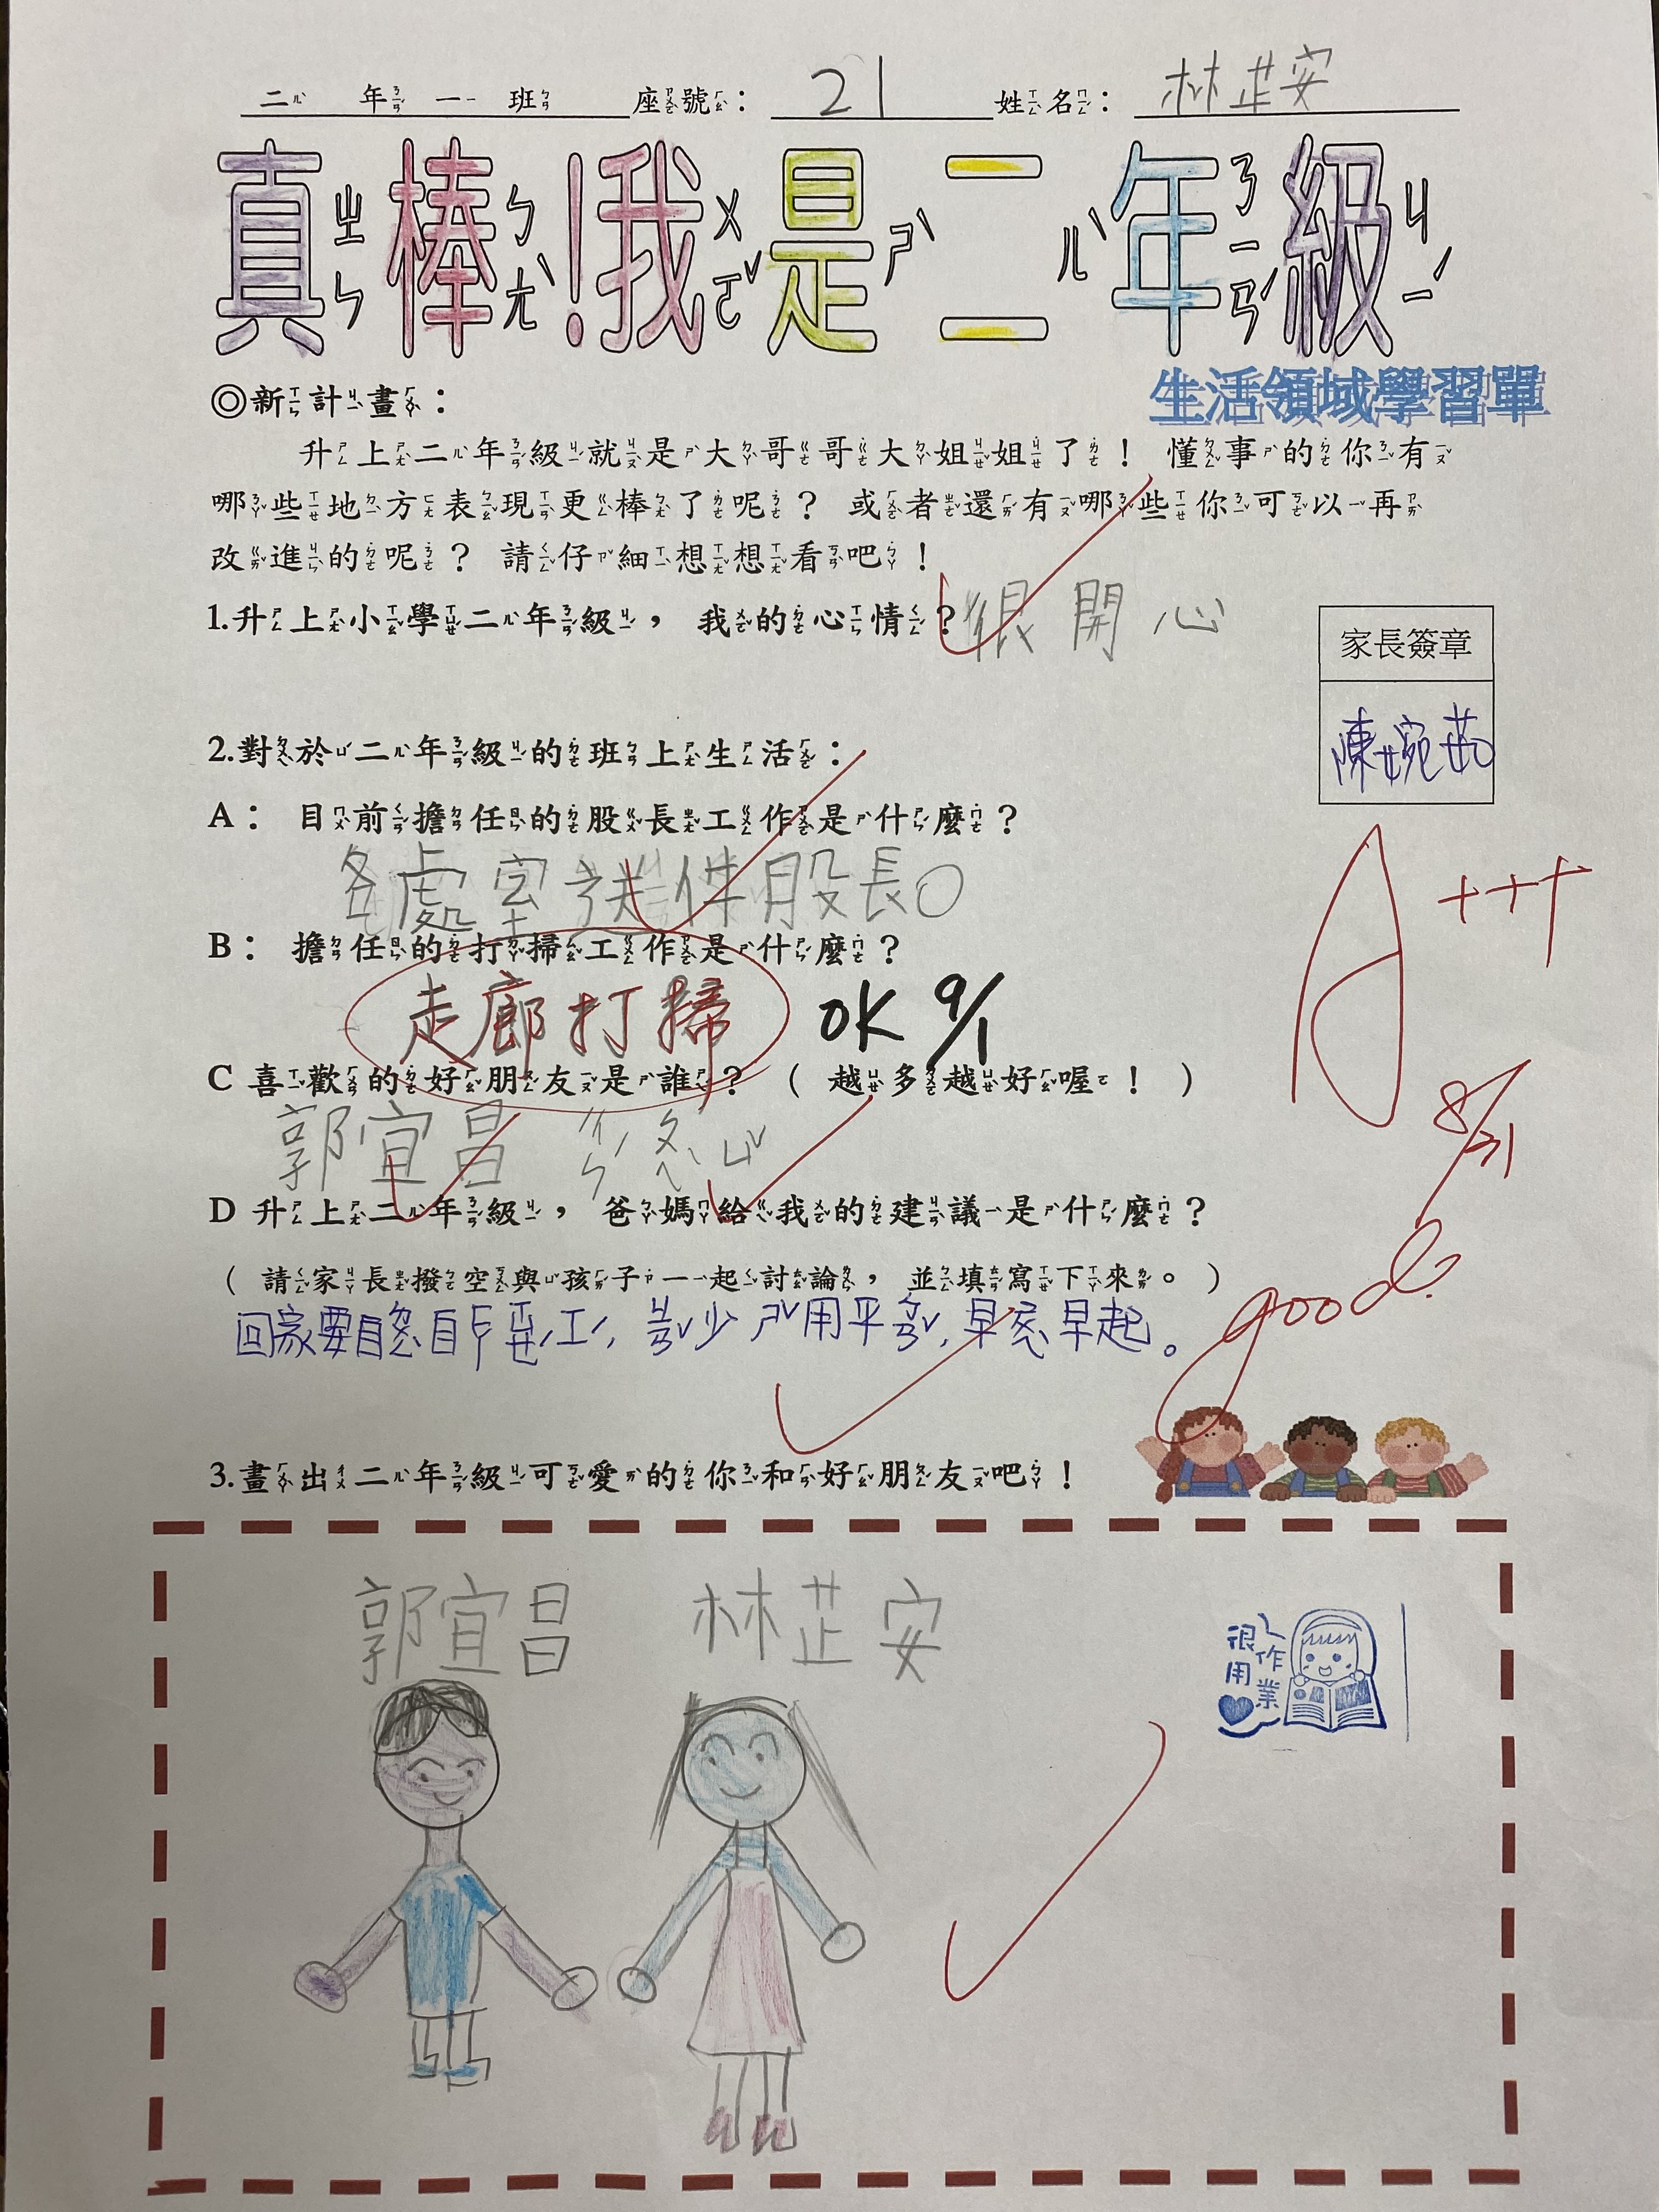 二年一班 座號： 21 姓名： 林芷安
真棒！我是二年級
生活領域學習單
◎新計畫：
升上二年級就是大哥哥大姐姐了！ 懂事的你有
哪些地方表現更棒了呢？ 或者還有哪些你可以再
改進的呢？ 請仔細想想看吧！
1.升上小學二年級， 我的心情？ 很開心
家長簽章
陳婉茹
2.對於二年級的班上生活：
A： 目前擔任的股長工作是什麼？
各處室送件股長。
A+++
B： 擔任的打掃工作是什麼？
走廊打掃 OK 9/1
C 喜歡的好朋友是誰？ （ 越多越好喔！ ）
郭宜昌
8/31
D 升上二年級， 爸媽給我的建議是什麼？
（ 請家長撥空與孩子一起討論， 並填寫下來。 ）
good
早起。
3.畫出二年級可愛的你和好朋友吧！
郭宜昌 林芷安
很用心作業